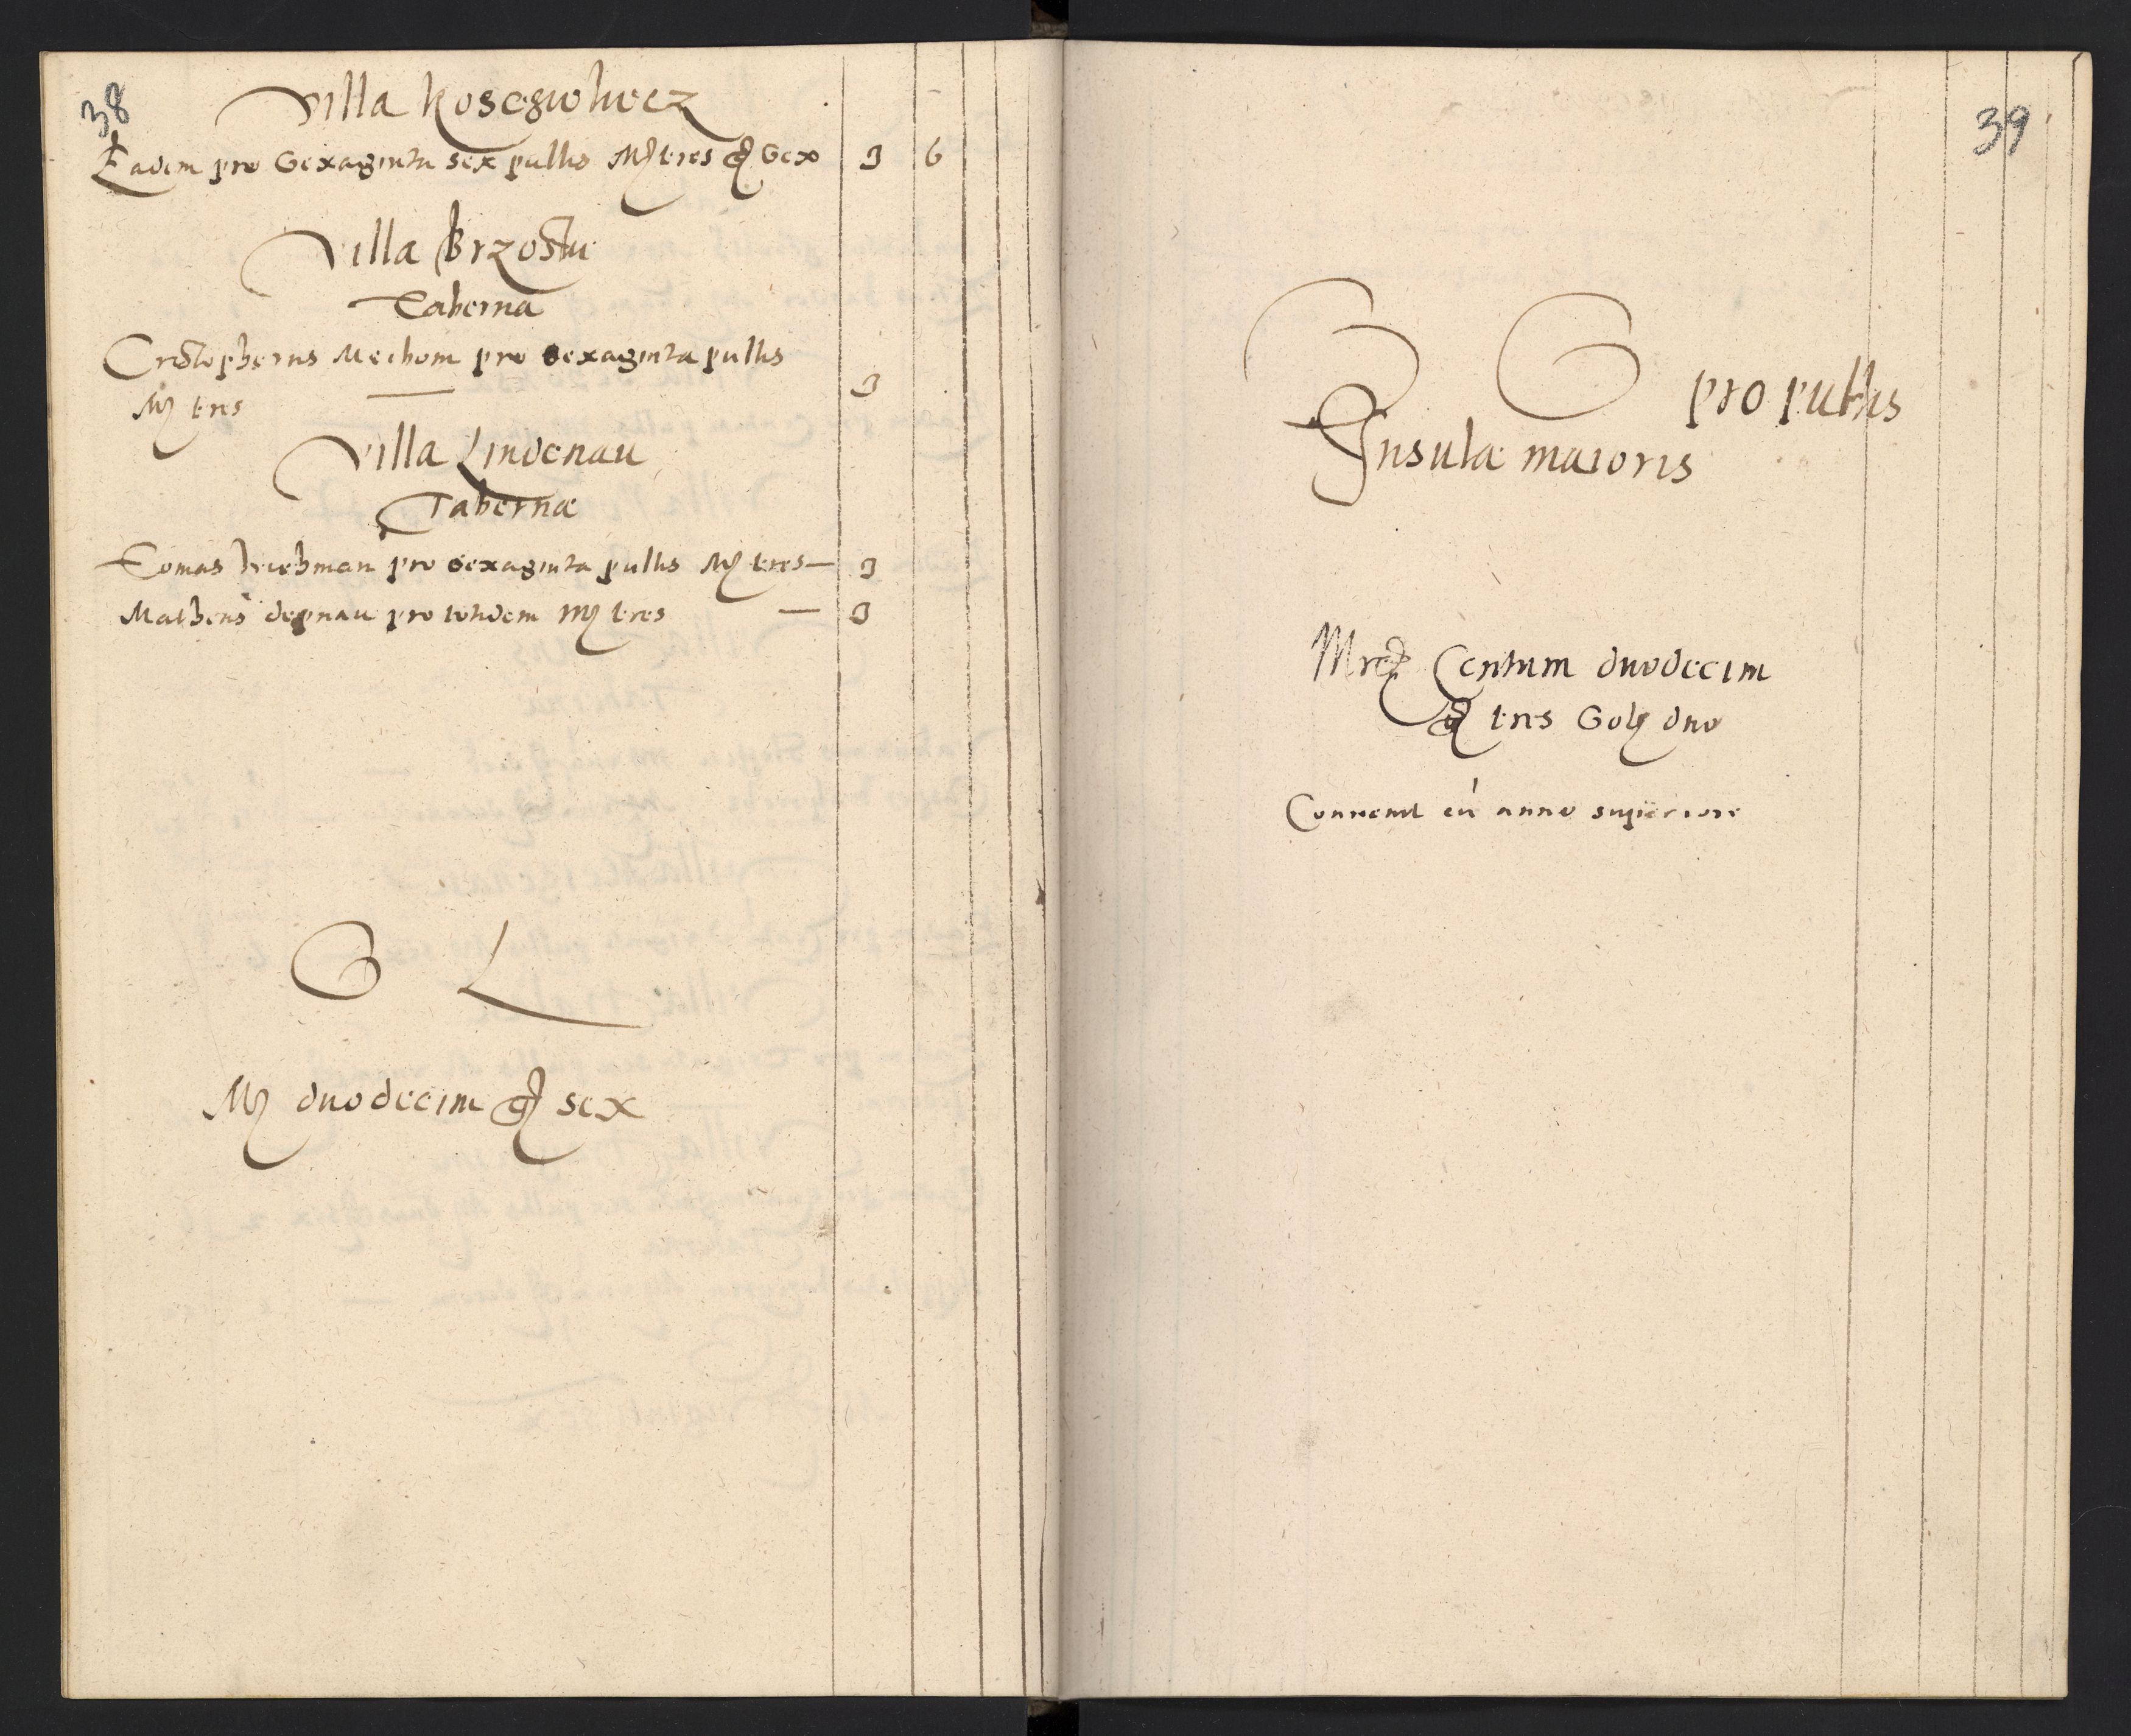 38
Villa Koseguhwcz
Eadem pro Sexaginta sex pullis M tres g Sex 3 6
Villa Brzostu
Taberna
Cristopherus Meihom pro sexaginta pullis
M tres 3
Villa Lindenau
Tabernæ
Tomas pro sexaginta pullis M tres — 3
Matheus depnau pro totidem M tres — 3
S L
M duodecim g sex
39
S S pro pullis
Insulæ maioris
Mrc Centum duodecim
g tres Sol duo
Conuenit cū anno superiore